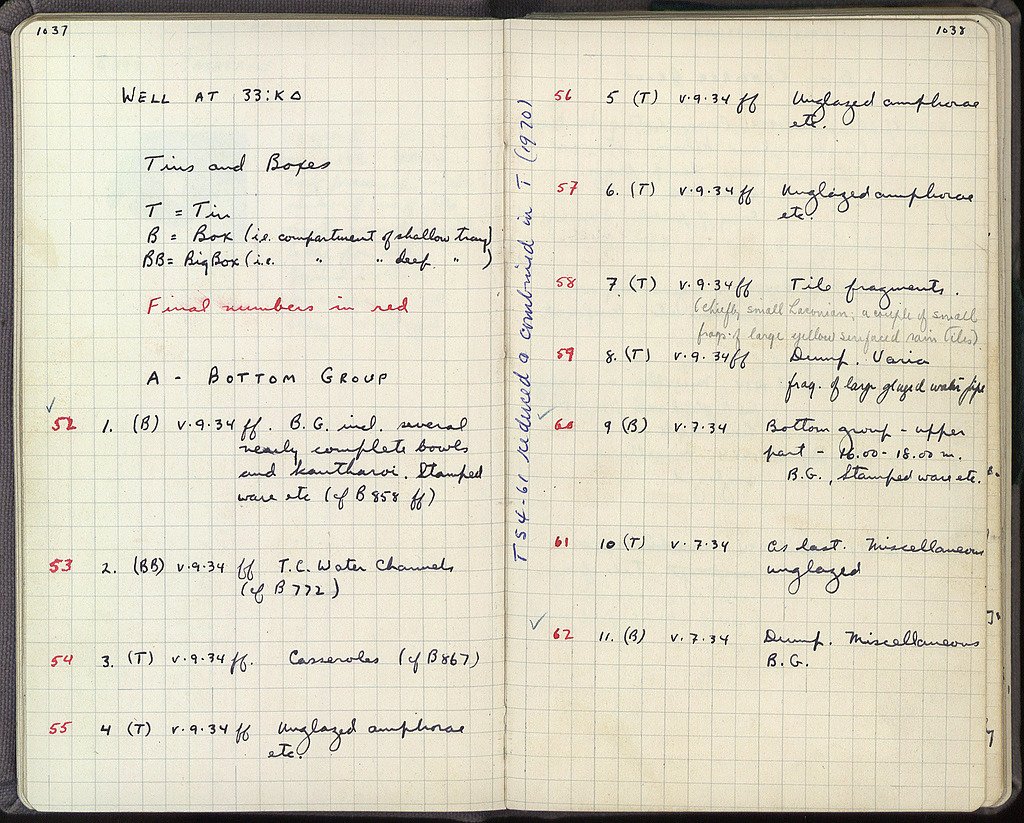 1037
WELL AT 33:ΚΔ
Tins and Boxes
T = Tin
B = Box (i.e. compartment of shallow tray)
BB = Big Box (i.e. " " deep " )
Final numbers in red
A - BOTTOM GROUP
52 1. (B) v.9.34 ff. B.G. incl. several
nearly complete bowls
and kantharoi. Stamped
ware etc (cf B 858 ff)
53 2. (BB) v.9.34 ff T.C. Water Channels
(cf B 772)
54 3. (T) v.9.34 ff. Casseroles (cf B 867)
55 4 (T) v.9.34 ff Unglazed amphorae
etc.
T 54-61 reduced & combined in T (1970)
1038
56 5 (T) v.9.34 ff Unglazed amphorae
etc.
57 6. (T) v.9.34 ff Unglazed amphorae
etc.
58 7 (T) v.9.34 ff Tile fragments.
(chiefly small Laconian; a couple of small
frags of large yellow surfaced rain tiles).
59 8. (T) v.9.34 ff Dump. Varia
frag. of large glazed water pipe
60 9 (B) v.7.34 Bottom group - upper
part - 16.00-18.00 m.
B.G., Stamped ware etc.
61 10 (T) v.7.34 as last. Miscellaneous
unglazed
62 11. (B) v.7.34 Dump. Miscellaneous
B.G.